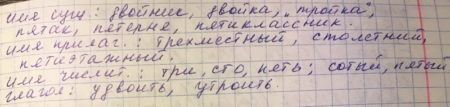 имя сущ.: двойник, двойка, „тройка",
пятак, пятерня, пятиклассник.
имя прилаг.: трехместный, столетний,
пятиэтажный.
имя числит.: три, сто, пять; сотый, пятый
глагол: удвоить, утроить.